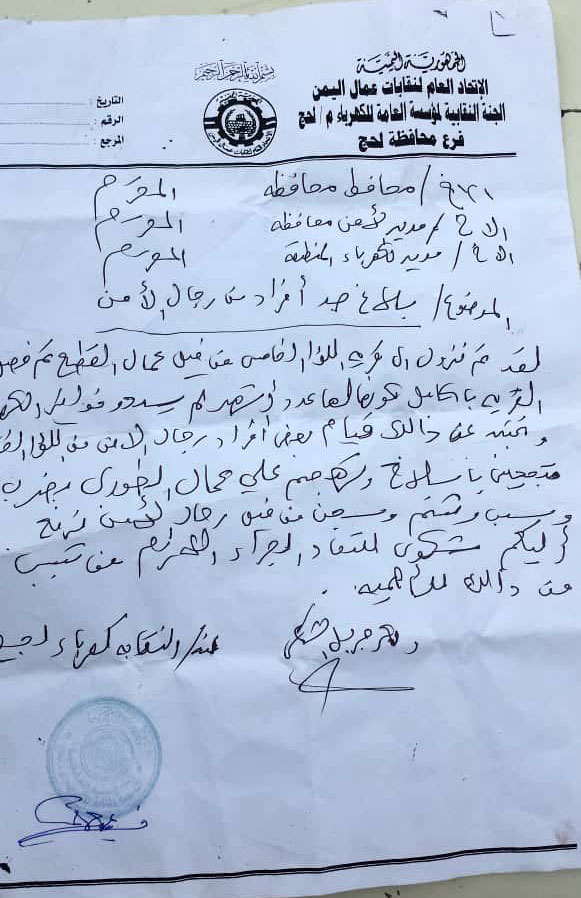 الجمهورية اليمنية
الإتحاد العام لنقابات عمال اليمن
الجنة النقابية لمؤسسة العامة للكهرباء م/ لحج
فرع محافظة لحج
بسم الله الرحمن الرحيم
التاريخ :
الرقم :
المرجع :
الاخ / محافظ محافظه المحترم
الاخ / مدير أمن محافظه المحترم
الاخ / مدير كهرباء المنطقة المحترم
الموضوع / بلاغ ضد أفراد من رجال الأمن
لقد تم نزول الى قريه اللواء الخامس من قبل عمال القطع تم فصل
القريه بالكامل كونها عدد أشهر لم يسددو فواتير الكهر
ونتج عن ذالك قيام بعض أفراد رجال الامن من اللواء
بأسلاح علي عمال الطورى بضرب
وسب وشتم وسجن من قبل رجال الأمن نرفع
أليكم شكوى الجراء من تسبب
من ذالك للأهميه
عنه/ النقابه كهرباء لحج